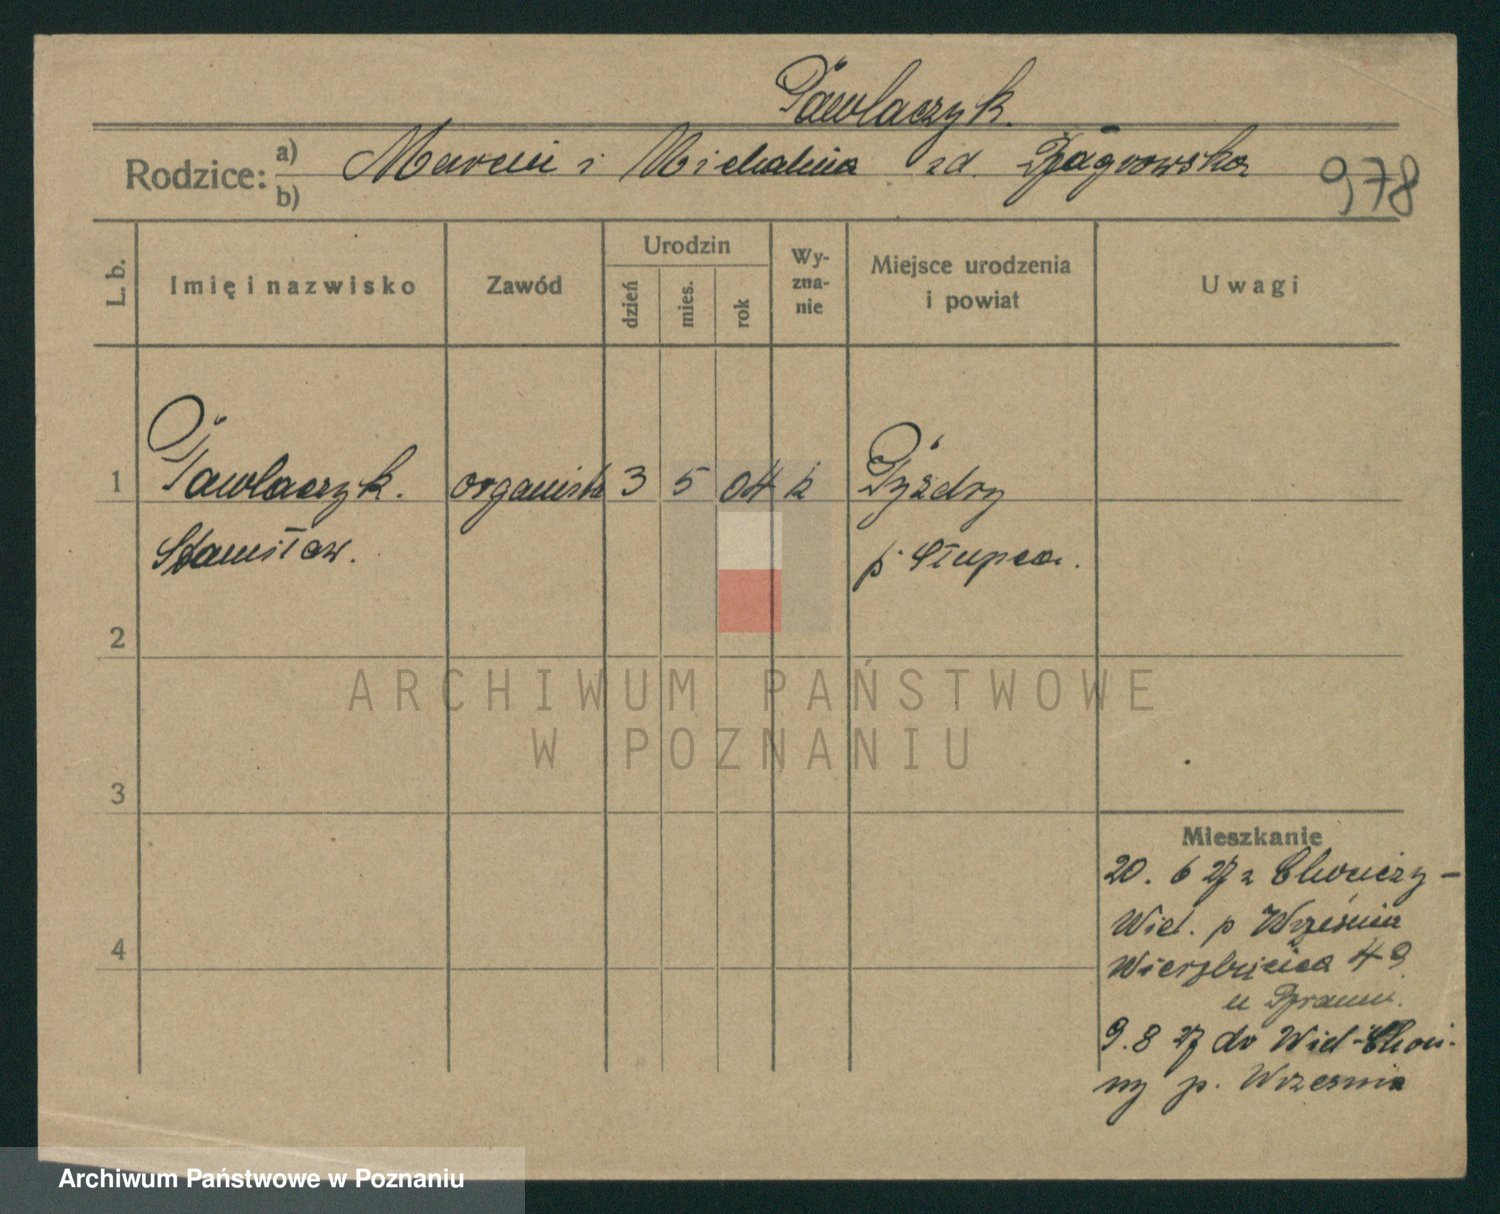 Pawlaczyk.
Rodzice: a) Marcin i Michalina zd. Zagrowska
b)
978
L. b.
Imię i nazwisko
Zawód
Urodzin
dzień
mies.
rok
Wy-
zna-
nie
Miejsce urodzenia
i powiat
Uwagi
1 Pawlaczyk. organista 3 5 04 k Pyzdry
Stanisław. p. Słupca.
2
3
4
ARCHIWUM PAŃSTWOWE
W POZNANIU
Mieszkanie
20. 6 27 z
Wiel. p Września
Wierzbięcice 49
u
9. 8 27 do Wiel-
ny p. Wrzesnia
Archiwum Państwowe w Poznaniu